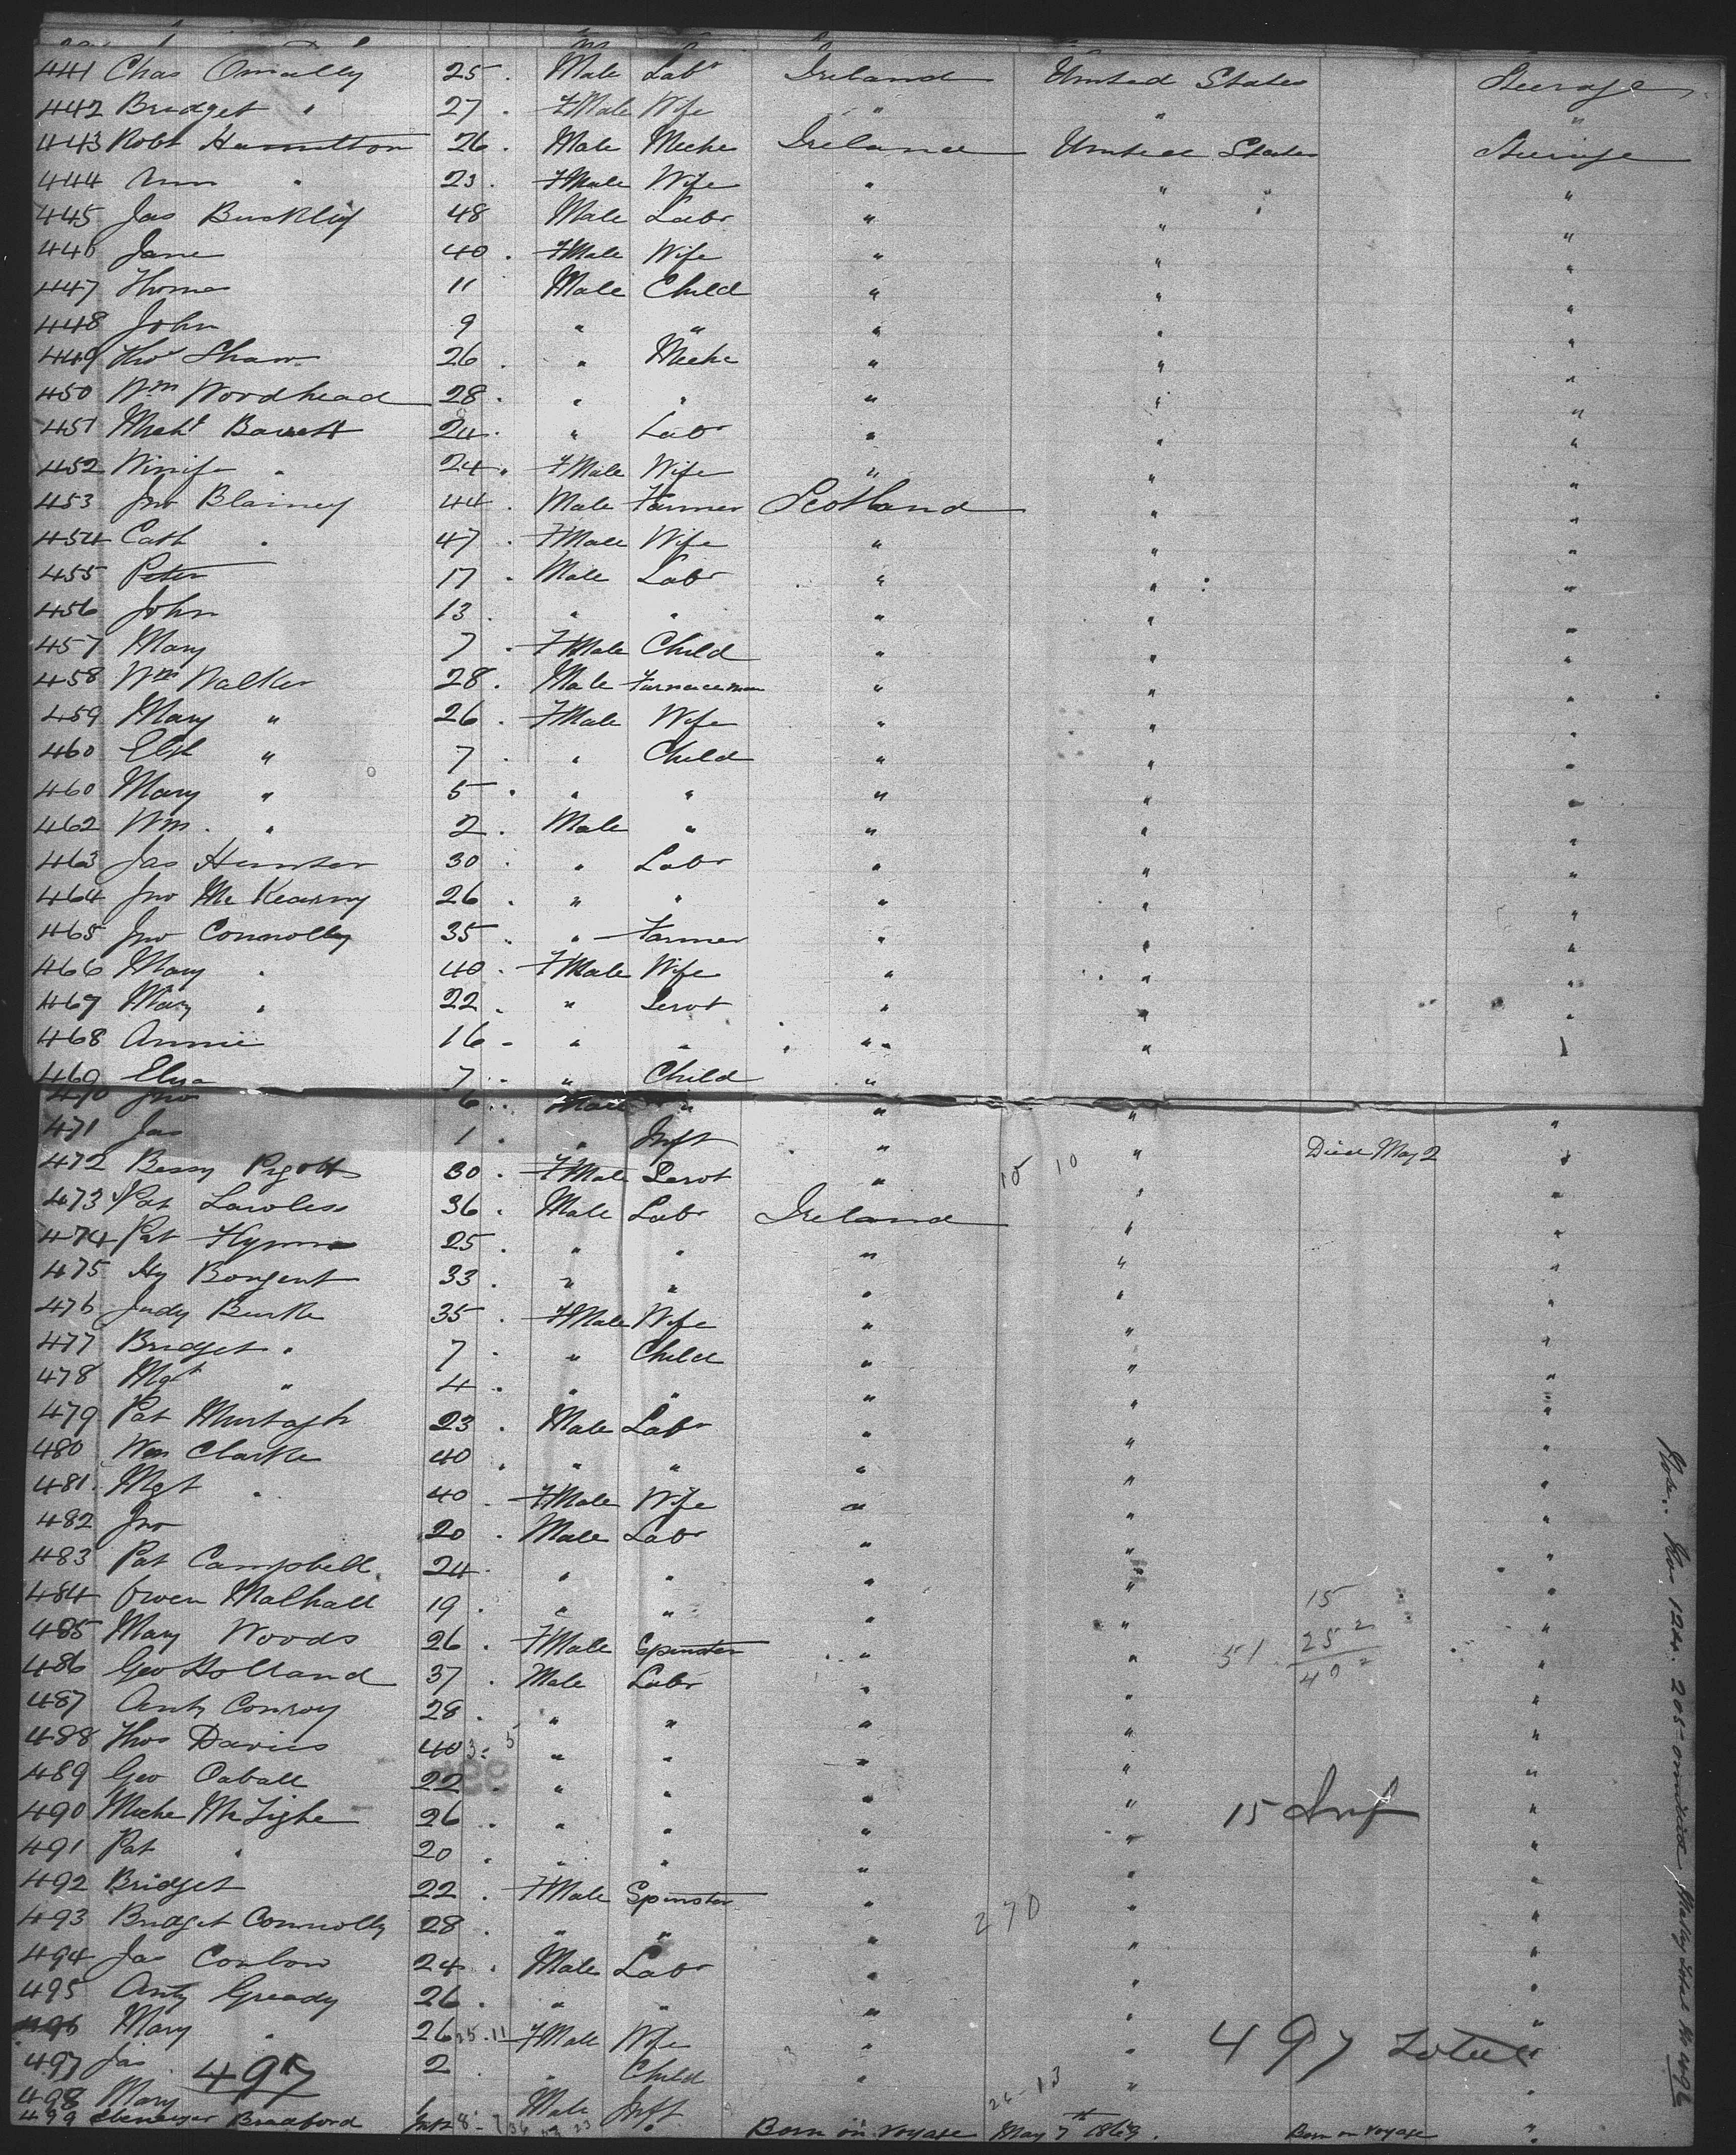 441 Chas Omally 25 Male Labr Ireland United States Steerage
442 Bridget " 27 FMale Wife " " "
443 Robt Hamilton 26 Male Mechc Ireland United States Steerage
444 Ann " 23 FMale Wife " " "
445 Jas Buckley 48 Male Labr " " "
446 Jane 40 FMale Wife " " "
447 Thomas 11 Male Child " " "
448 John 9 " " " " "
449 Thos Shaw 26 " Mechc " " "
450 Wm Woodhead 28 " " " " "
451 Michl Barrett 24 " Labr " " "
452 Winife " 24 FMale Wife " " "
453 Jno Blainey 44 Male Farmer Scotland " "
454 Cath " 47 FMale Wife " " "
455 Peter 17 Male Labr " " "
456 John 13 " " " " "
457 Mary 7 FMale Child " " "
458 Wm Walker 28 Male Furnaceman " " "
459 Mary " 26 FMale Wife " " "
460 Elizh " 7 " Child " " "
460 Mary " 5 " " " " "
462 Wm. " 2 Male " " " "
463 Jas Hunter 30 " Labr " " "
464 Jno Mc Kearny 26 " " " " "
465 Jno Connolly 35 " Farmer " " "
466 Mary " 40 FMale Wife " " "
467 Mary " 22 " Servt " " "
468 Annie 16 " " " " "
469 Eliza 7 " Child "
470 Jno 6 Male " " " "
471 Jas 1 " Inft " " Died May 2 "
472 Bessy Pigott 30 FMale Servt " 15 10 " "
473 Pat Lawless 36 Male Labr Ireland " "
474 Pat Flynn 25 " " " " "
475 Hy Bongent 33 " " " " "
476 Judy Burke 35 FMale Wife " " "
477 Bridget " 7 " Child " " "
478 Mgt " 4 " " " " "
479 Pat Murtagh 23 Male Labr " " "
480 Wm Clarke 40 " " " " "
481 Mgt " 40 FMale Wife " " "
482 Jno 20 Male Labr " " "
483 Pat Campbell 24 " " " " "
484 Owen Malhall 19 " " " " 15 "
485 Mary Woods 26 FMale Spinster " " 51 "
486 Geo Holland 37 Male Labr " " "
487 Anty Conroy 28 " " " " "
488 Thos Davies 40 " " " " "
489 Geo Caball 22 " " " " "
490 Miche McTighe 26 " " " " 15 Inf "
491 Pat " 20 " " " " "
492 Bridget 22 FMale Spinster " " "
493 Bridget Connolly 28 " " " 270 " "
494 Jas Conlon 24 Male Labr " " "
495 Anty Gready 26 " " " " "
496 Mary " 26 FMale Wife " " 497 Total "
497 Jas 497 2 " Child " " "
498 Mary 1 Male Inft
499 Ebenezer Bradford Inft Born on voyage May 7th 1869. Born on voyage "
Nos. 124. 205 omitted Making total No 496